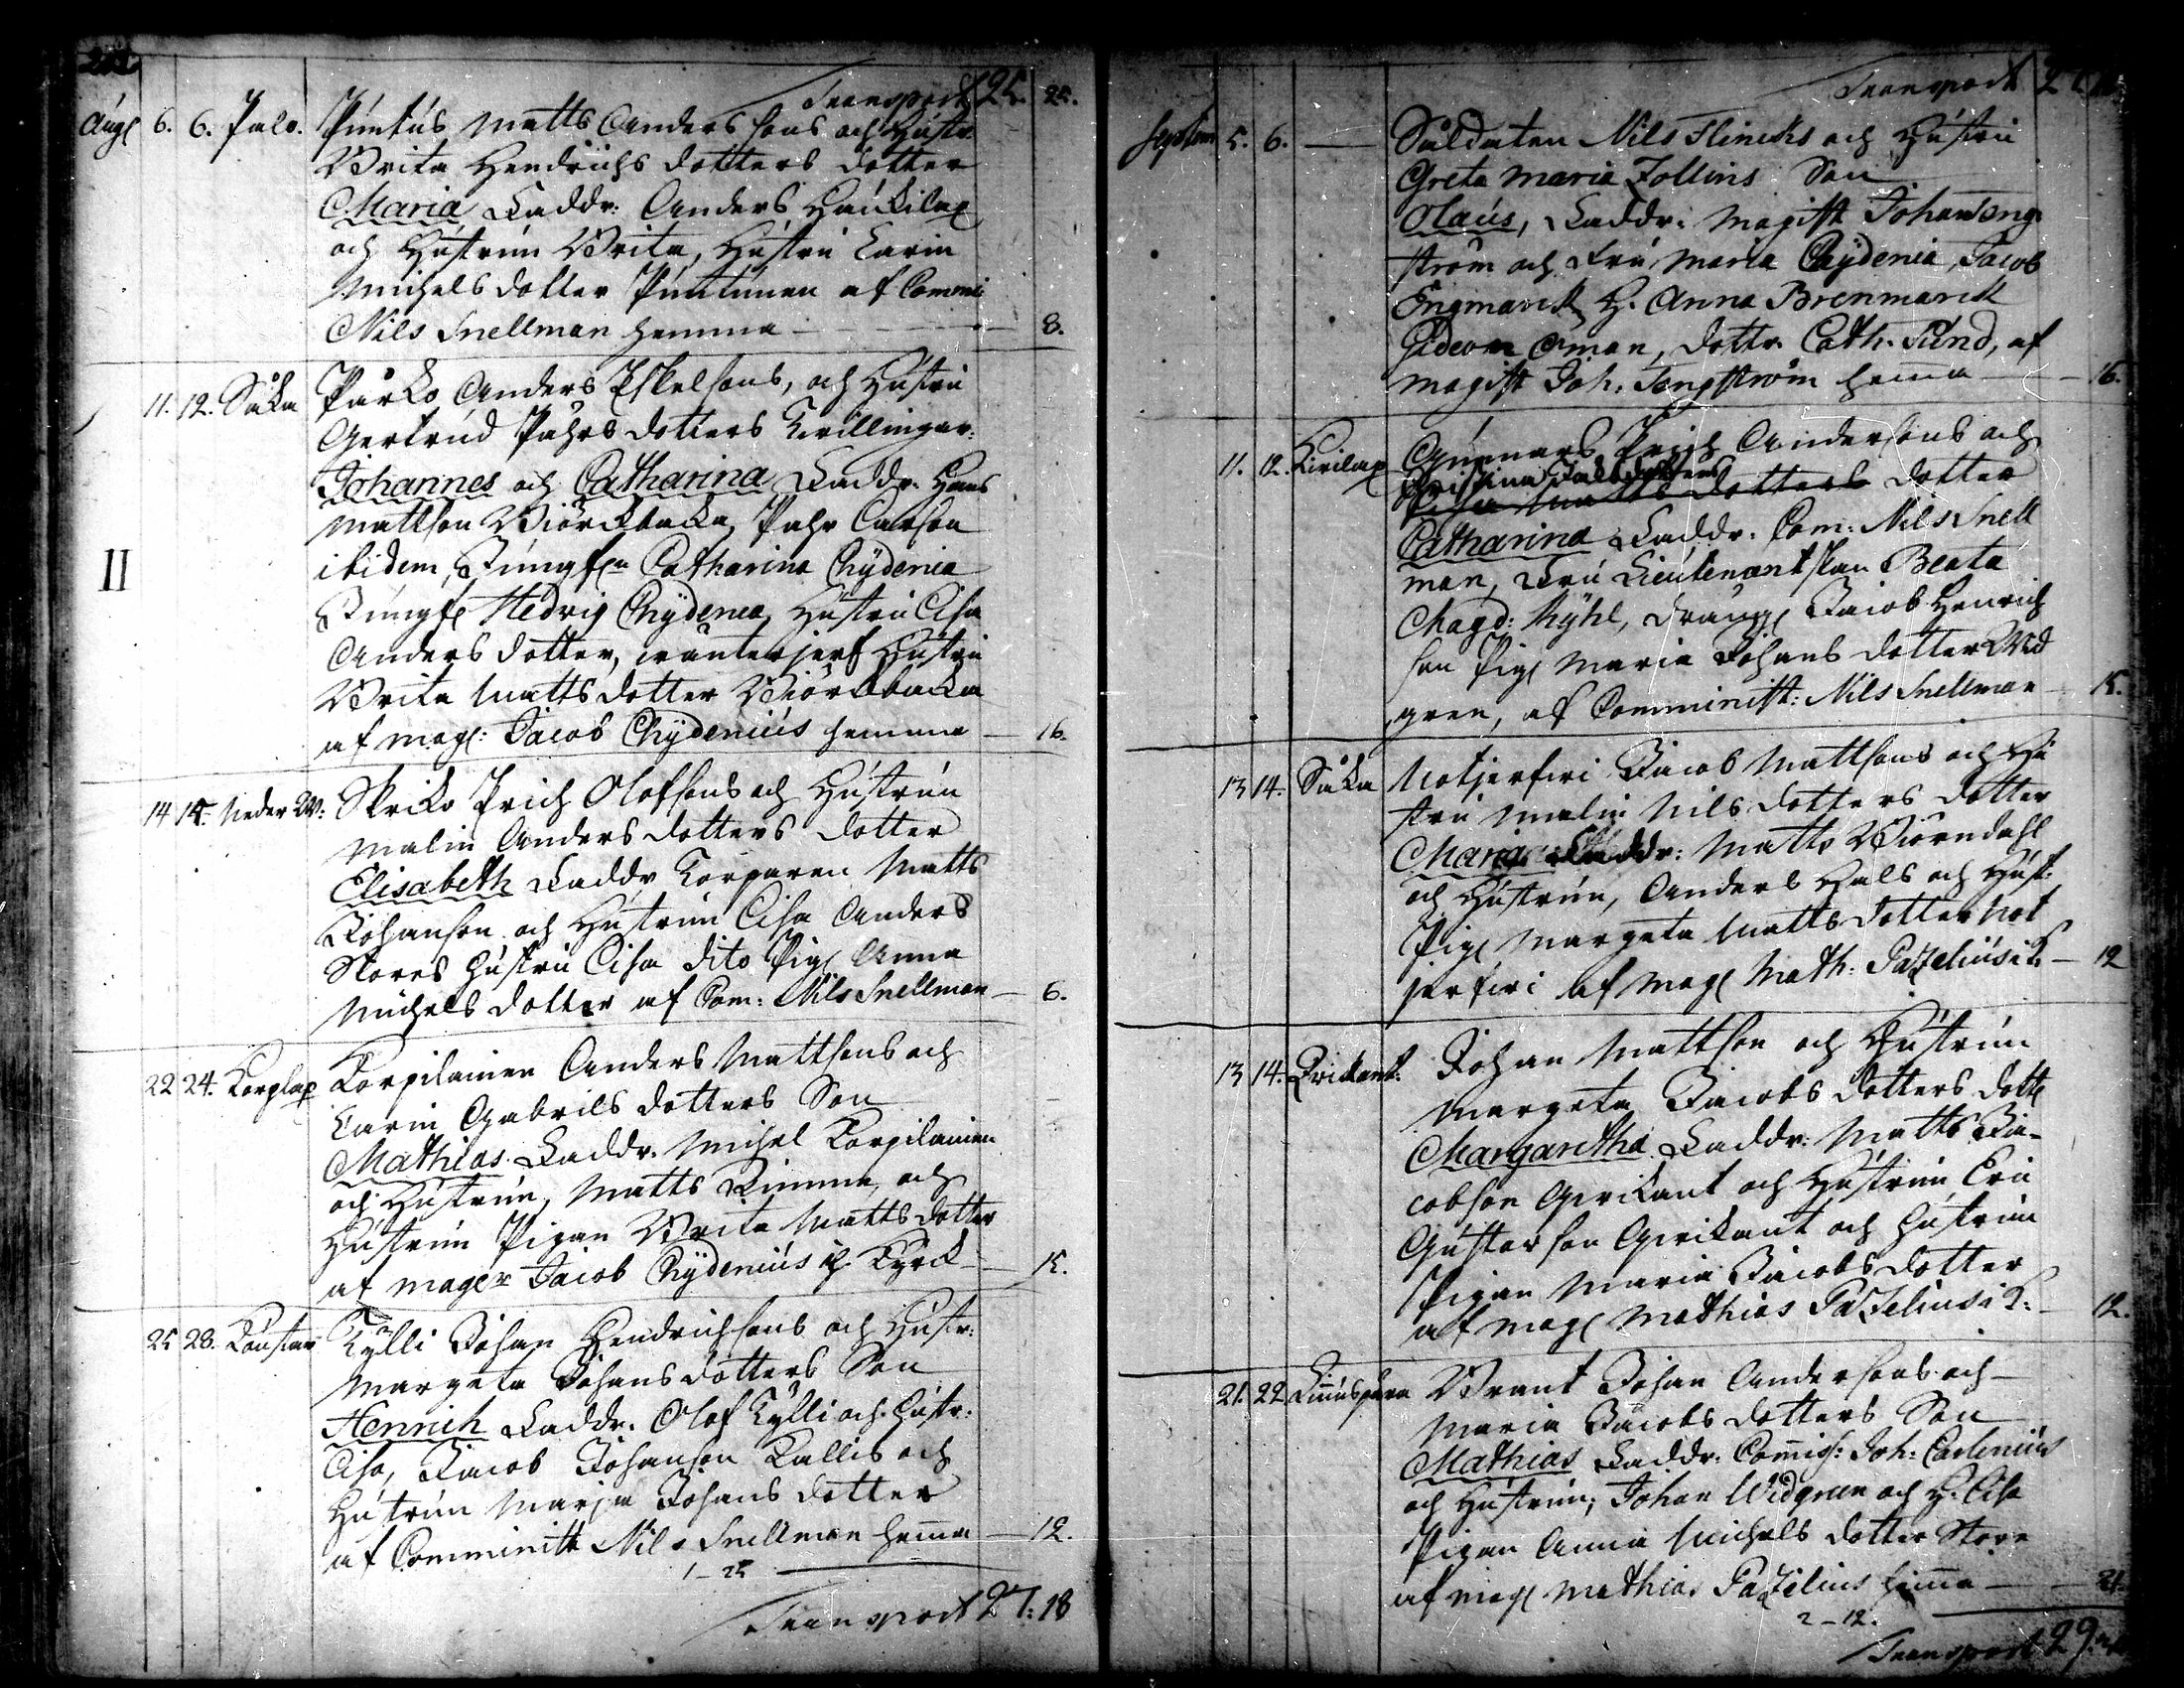 Transport 25. 25.
Aug 6. 6. Palo. Puntus Matts Anders sons och Hustr.
Brita Hendrichs dotters dotter
Maria Faddr: Anders Haukilax
och Hustrun Brita, Hustru Carin
Michels dotter Puntunen af Commi
Nils Snellman hemma — 8.
11. 12. Såka Pärko Anders Eskelsons, och Hustru
Gertrud Påhrs dotters Tvillingar.
Johannes och Catharina Faddr. Hans
Mattson Biörckbacka, Påhr Carson
ibidem, Jungfn Catharina Chydenia
Jungf Hedvig Chydenia, Hustru Lisa
Anders dotter, Hustru
Brita Matts dotter Biörckbacka
af mag: Jacob Chydenius hemma — 16.
II
14 15. Neder W: Skriko Erich Olofsons och Hustrun
Malin Anders dotters dotter
Elisabeth Faddr Torparen Matts
Johanson och Hustrun Lisa Anders
Stores hustru Lisa dito Pig Anna
Michels dotter af Com: Nils Snellman — 6.
22 24. Korplax Korpilainen Anders Mattsons och
Carin Gabriels dotters Son
Mathias Faddr. Michel Korpilainen
och Hustrun, Matts Rimma, och
Hustrun Pigan Brita Matts dotter
af mager Jacob Chydenius i Kyrck — 15.
25 28. Kaustar Kylli Johan Hendrichsons och Hustr:
Margeta Johans dotters Son
Henrich Faddr. Olof Kylli och Hustr:
Lisa, Jacob Johanson Kallis och
Hustrun Marja Johans dotter
af Comminist Nils Snellman hema — 12.
1 – 25
Transport 27:18
Transport 27
Septem 5. 6. — Soldaten Nils Flincks och Hustru
Greta Maria Tollins Son
Olaus, Faddr: Magist Johan Teng
ström och Fru Maria Chydenia, Jacob
Engmarck H. Anna Brenmarck
Gideon Öman, dottr. Cath. Sund, af
magist Joh. Tengström hema — 16.
11. 12. Kirilax Gunnars Erich Andersons och
Christina Jacobs dotters
Lisa Matts dotters dotter
Catharina Faddr. Com: Nils Snell
man, Fru Lieutenantskan Beata
Magd: Kyhl, Dräng Jacob Henrich
son Pig Maria Johans dotter Wid
gren, af Comminist: Nils Snellman — 15.
13 14. Såka Notjerfwi Jacob Mattsons och Hu
stru Malin Nils dotters dotter
Maria Faddr: Matts Biörndahl
och Hustrun, Anders Hals och Hust:
Pig Margeta Matts dotter Not
jerfwi af mag Math: Pazelius i K. — 12
13 14. Johan Mattson och Hustrun
Margeta Jacobs dotters dott
Margaretha Faddr: Matts Ja-
cobson Gerikant och Hustrun Eric
Gustafson Gerikant och Hustrun
Pigan Maria Jacobs dotter
af mag Mathias Pazelius i K: — 12.
21. 22 Brant Johan Andersons och
Maria Jacobs dotters Son
Mathias Faddr. Comiss: Joh: Carlenius
och Hustrun; Johan Widgren och H. Lisa
Pigan Anna Michels dotter Store
af mag Mathias Pazelius hema — 21.
2 – 12.
Transport 29.